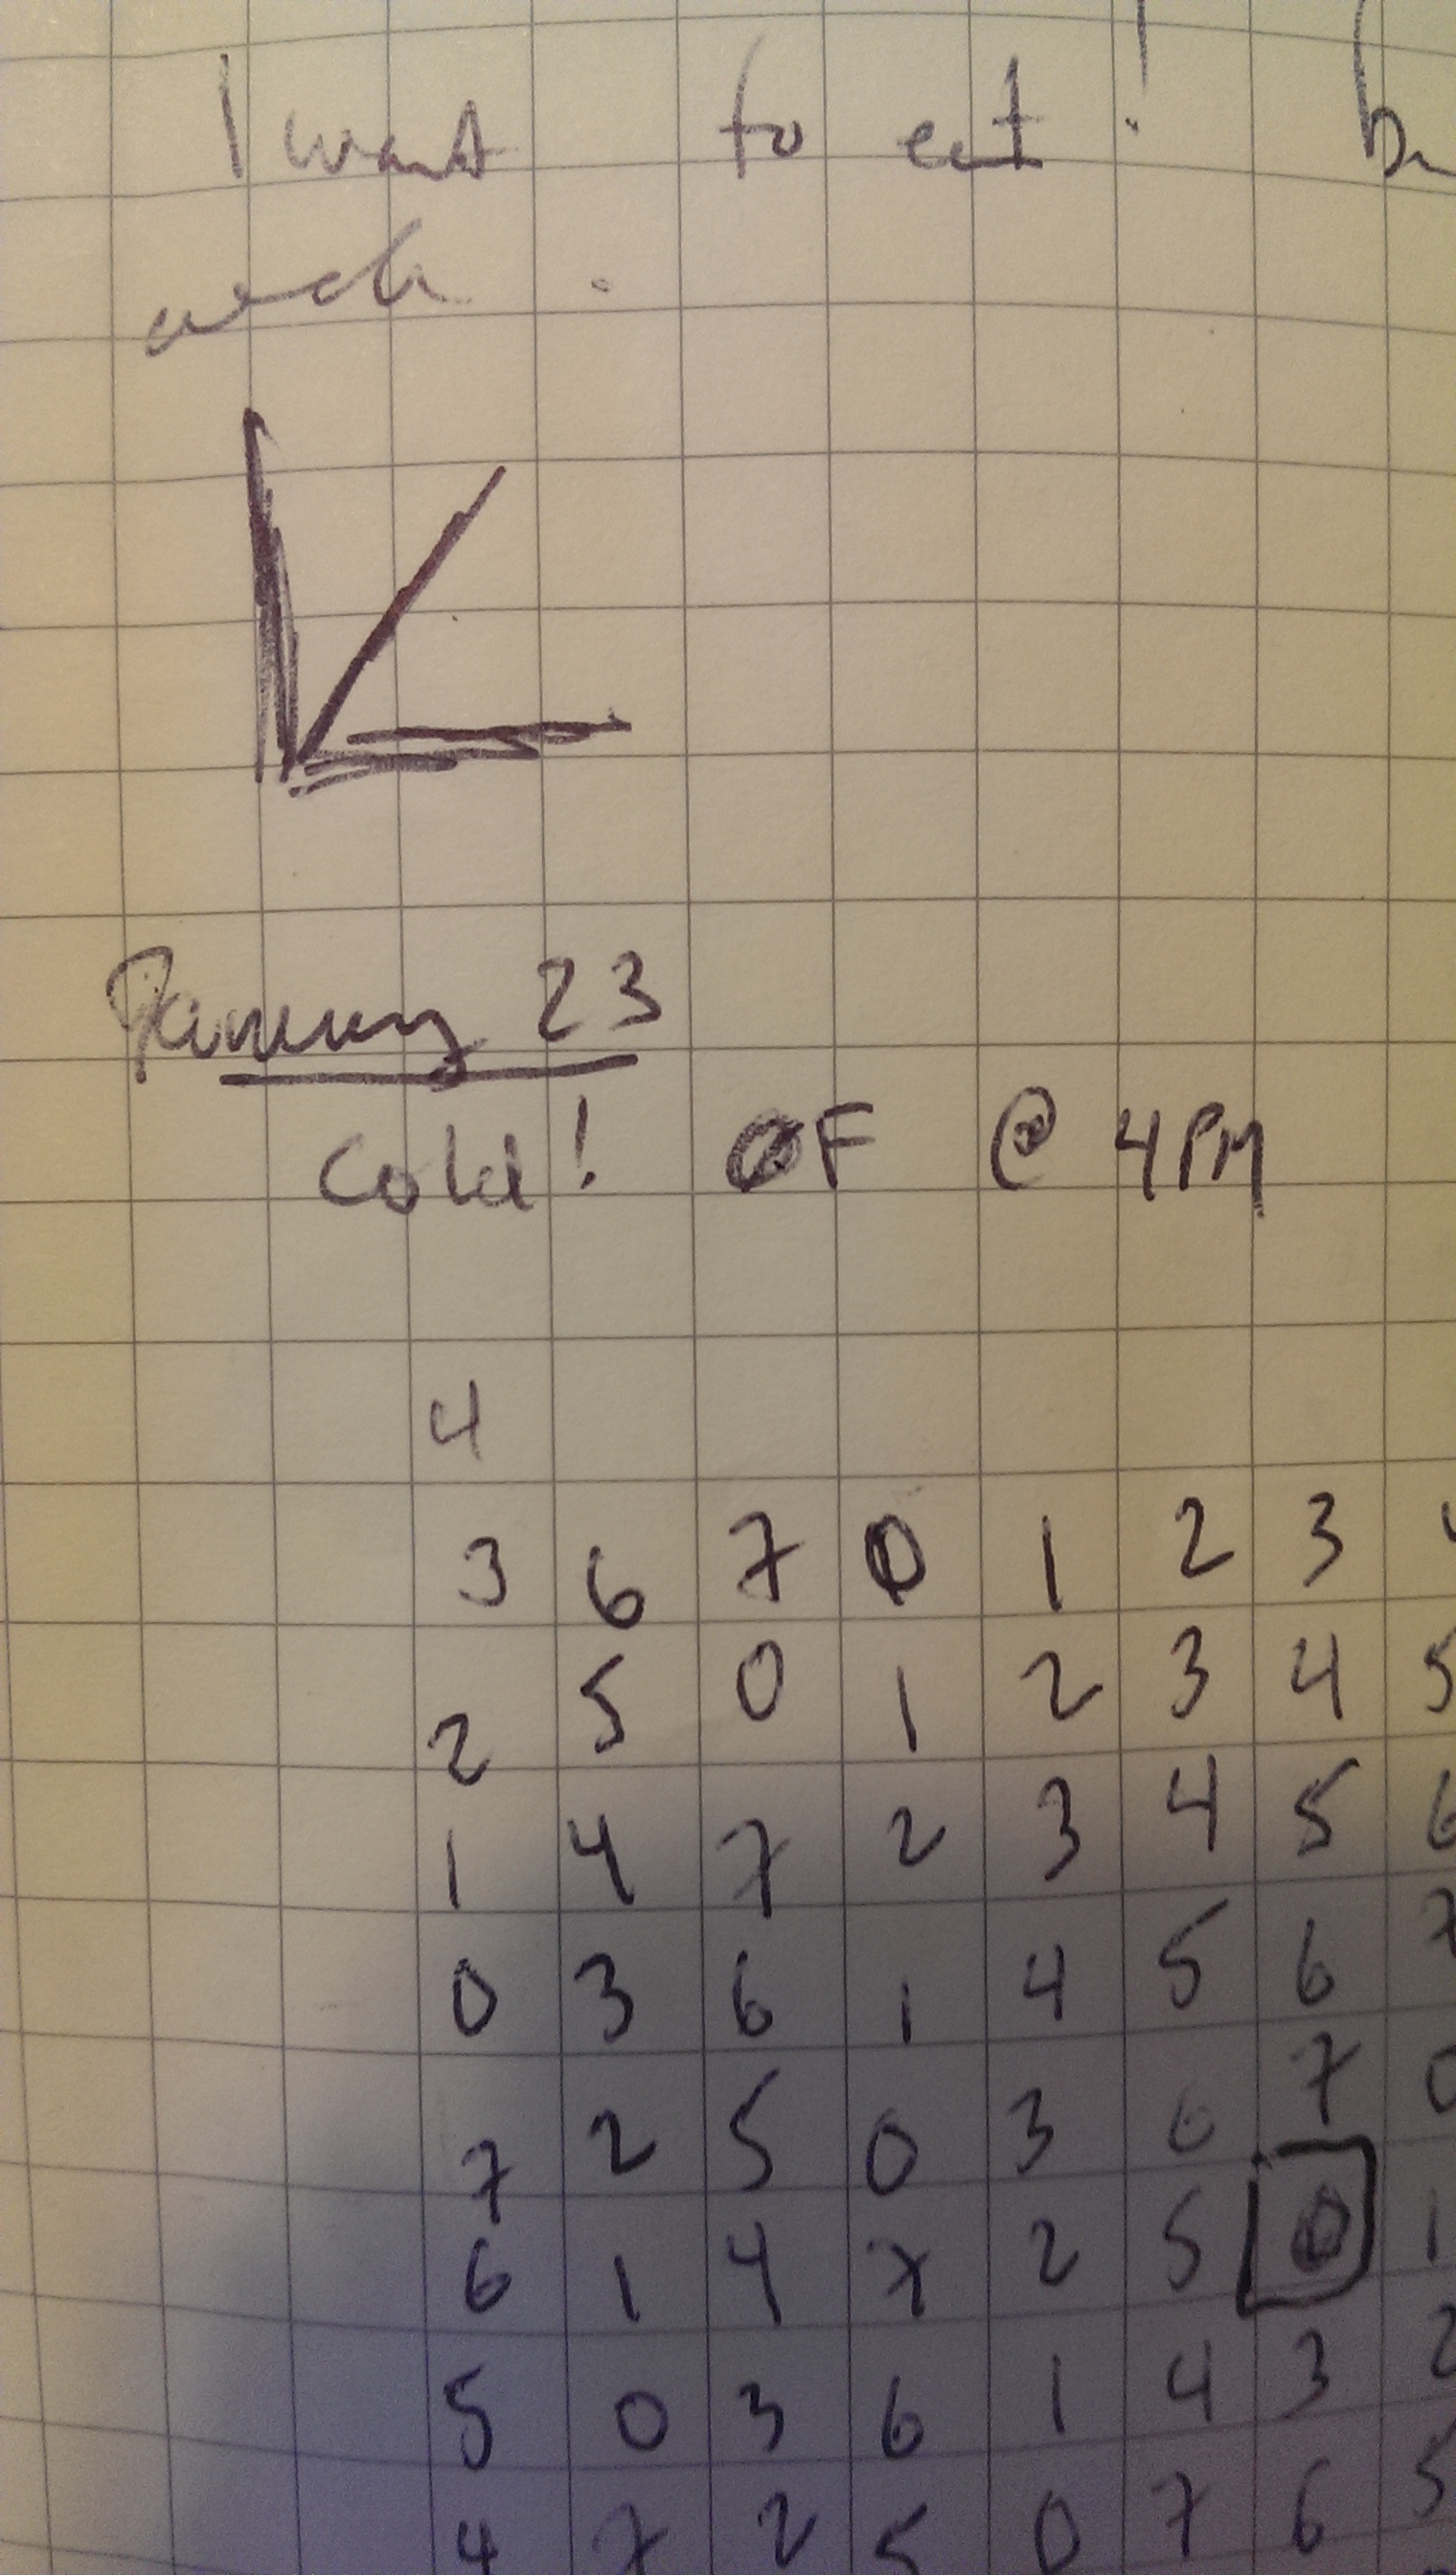 I want to eat!
January 23
Cold! 0F @ 4PM
4
3 6 7 0 1 2 3
2 5 0 1 2 3 4 5
1 4 7 2 3 4 5 6
0 3 6 1 4 5 6 7
7 2 5 0 3 6 7 0
6 1 4 7 2 5 0 1
5 0 3 6 1 4 3 2
4 7 2 5 0 7 6 5